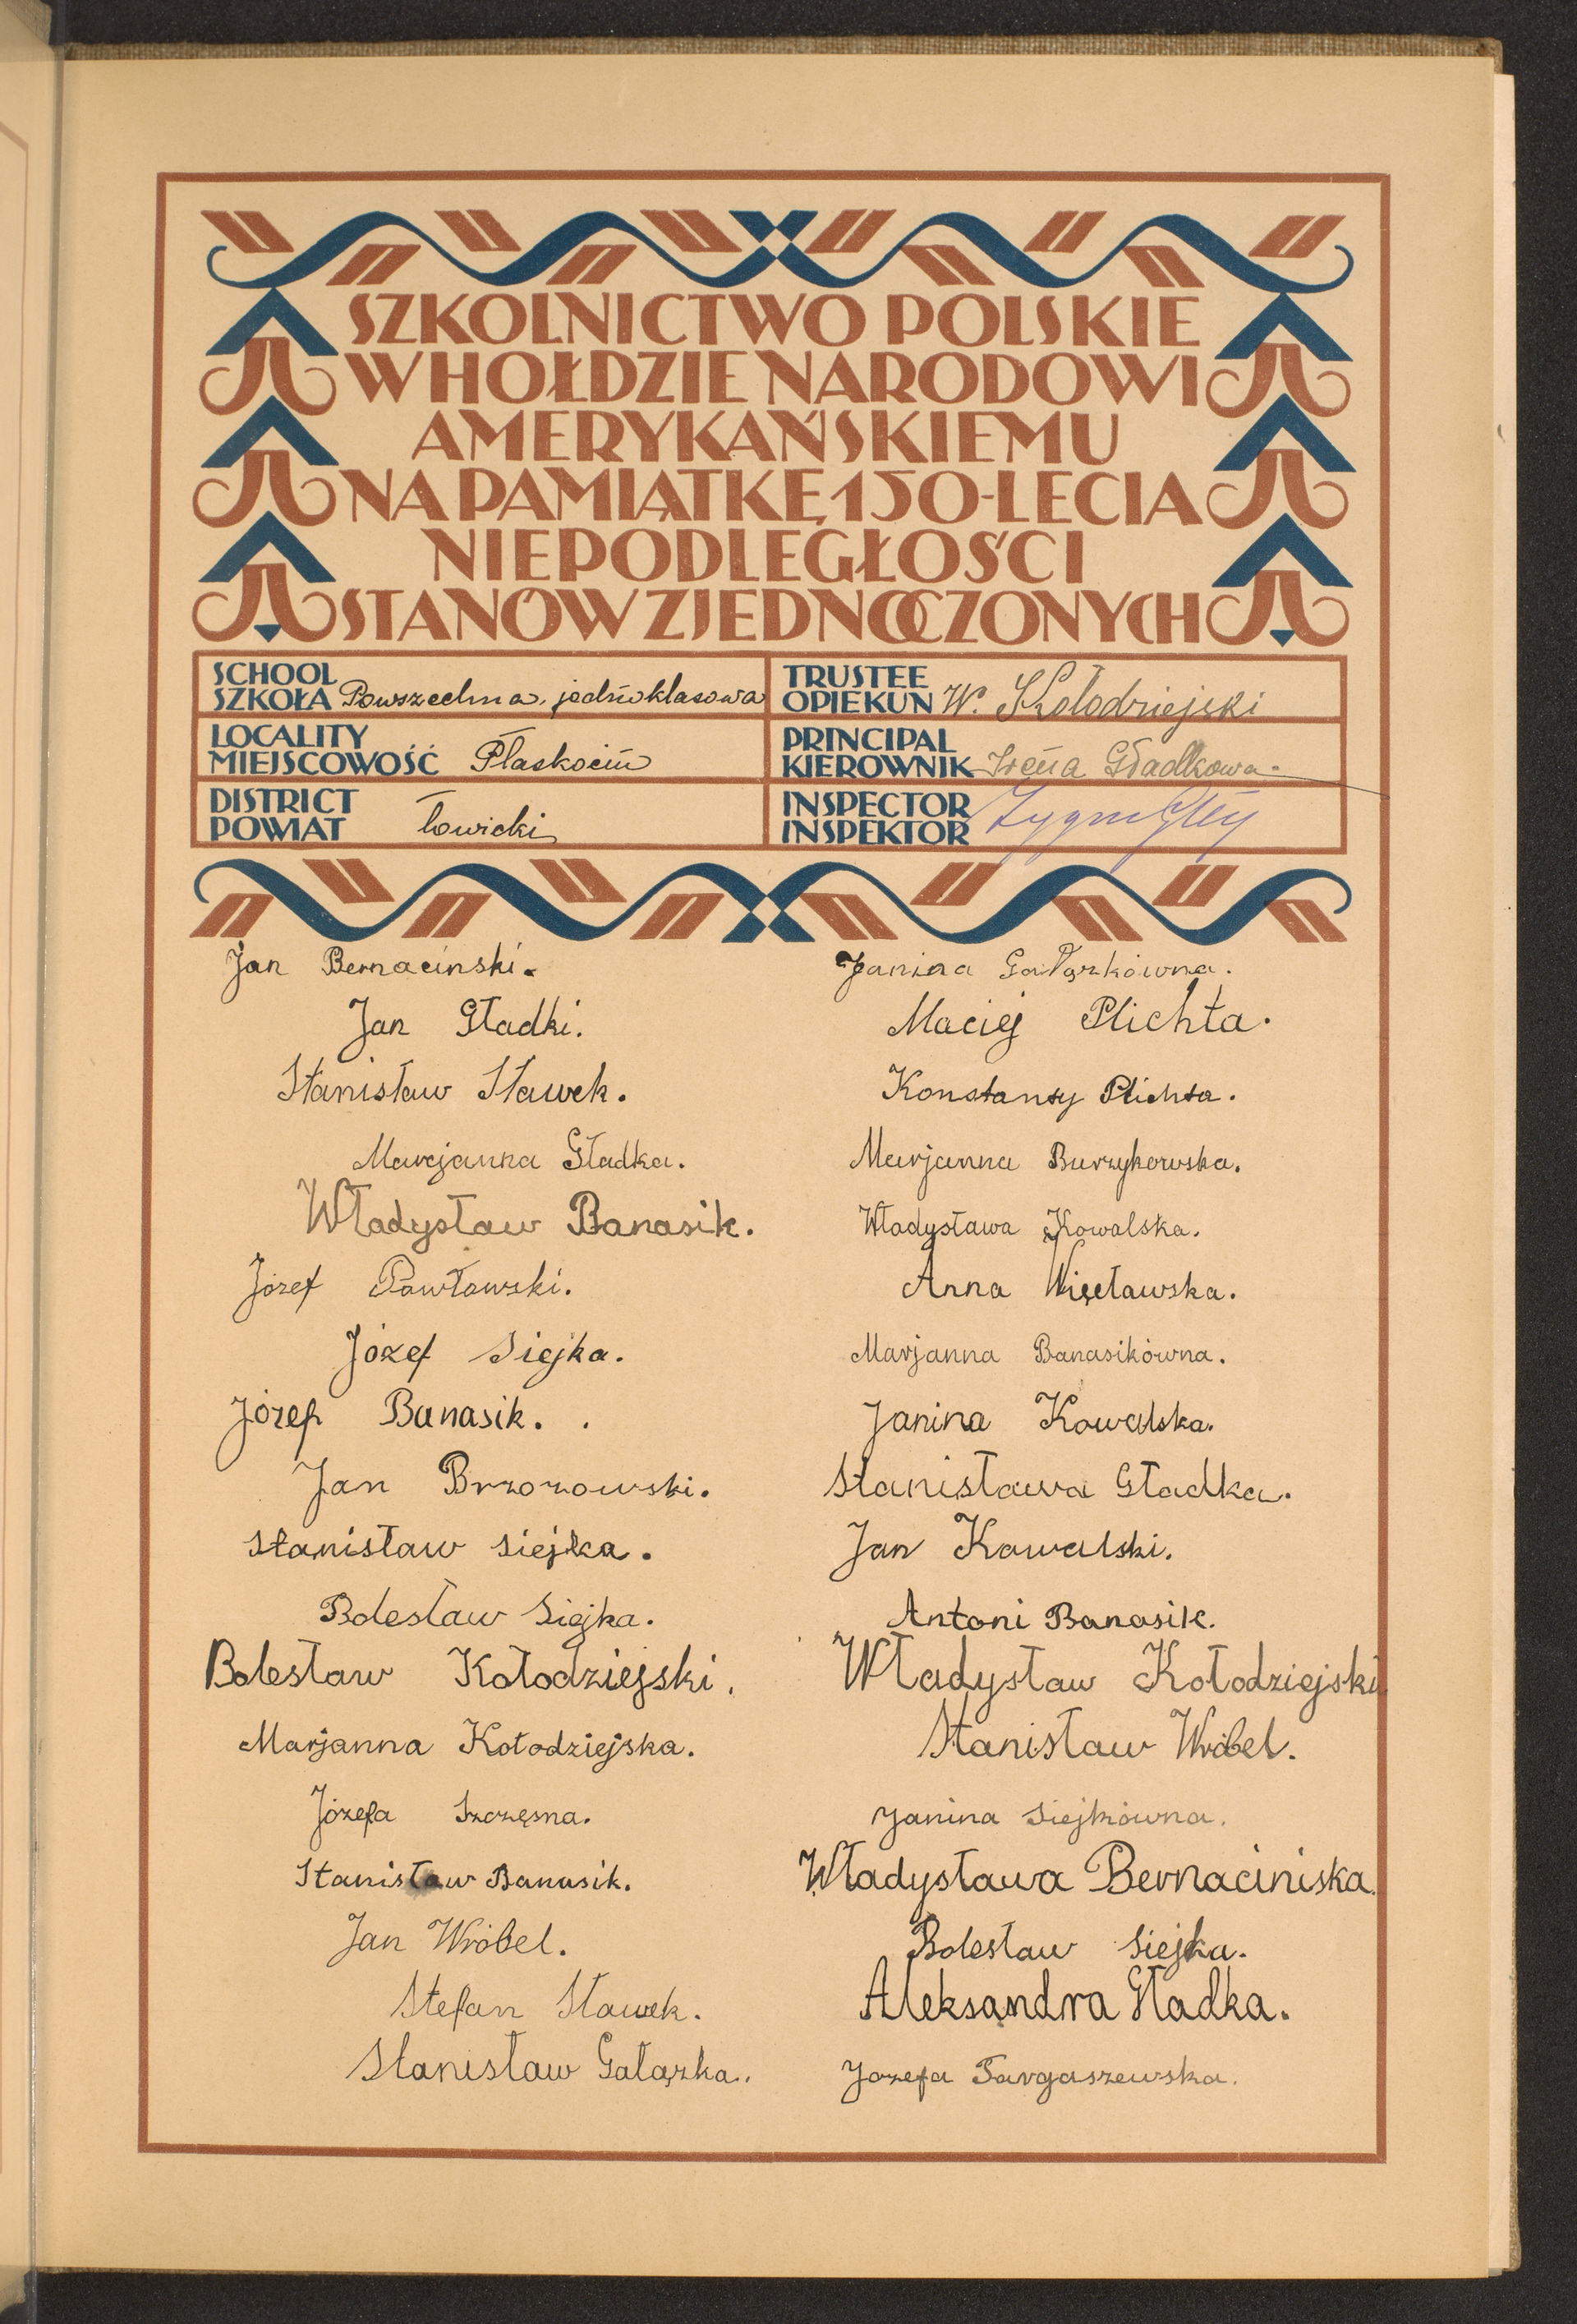 SZKOLNICTWO POLSKIE
W HOŁDZIE NARODOWI
AMERYKAŃSKIEMU
NA PAMIĄTKĘ 150-LECIA
NIEPODLEGŁOŚCI
STANÓW ZJEDNOCZONYCH
SCHOOL
SZKOŁA Powszechna jednoklasowa
TRUSTEE
OPIEKUN W. Kołodziejski
LOCALITY
MIEJSCOWOŚĆ Płaskocin
PRINCIPAL
KIEROWNIK Irena Gładkowa.
DISTRICT
POWIAT Łowicki
INSPECTOR
INSPEKTOR
Jan Bernacinski.
Jan Gładki.
Stanisław Sławek.
Marejanna Gładka.
Władysław Banasik.
Józef Pawławski.
Józef Siejka.
Józef Banasik.
Jan Brzozowski.
Stanisław Siejka.
Bolesław Siejka.
Bolesław Kołodziejski.
Marjanna Kołodziejska.
Józefa Szczęsna.
Stanisław Banasik.
Jan Wróbel.
Stefan Sławek.
Stanisław Gałązka.
Janina Gałązkówna.
Maciej Plichta.
Konstanty Plichta.
Marjanna Burzykowska.
Władysława Kowalska.
Anna Więcławska.
Marjanna Banasikówna.
Janina Kowalska.
Stanisława Gładka.
Jan Kawalski.
Antoni Banasik.
Władysław Kołodziejski
Stanisław Wróbel.
Janina Siejkówna.
Władysława Bernaciniska.
Bolesław Siejka.
Aleksandra Gładka.
Jozefa Targaszewska.